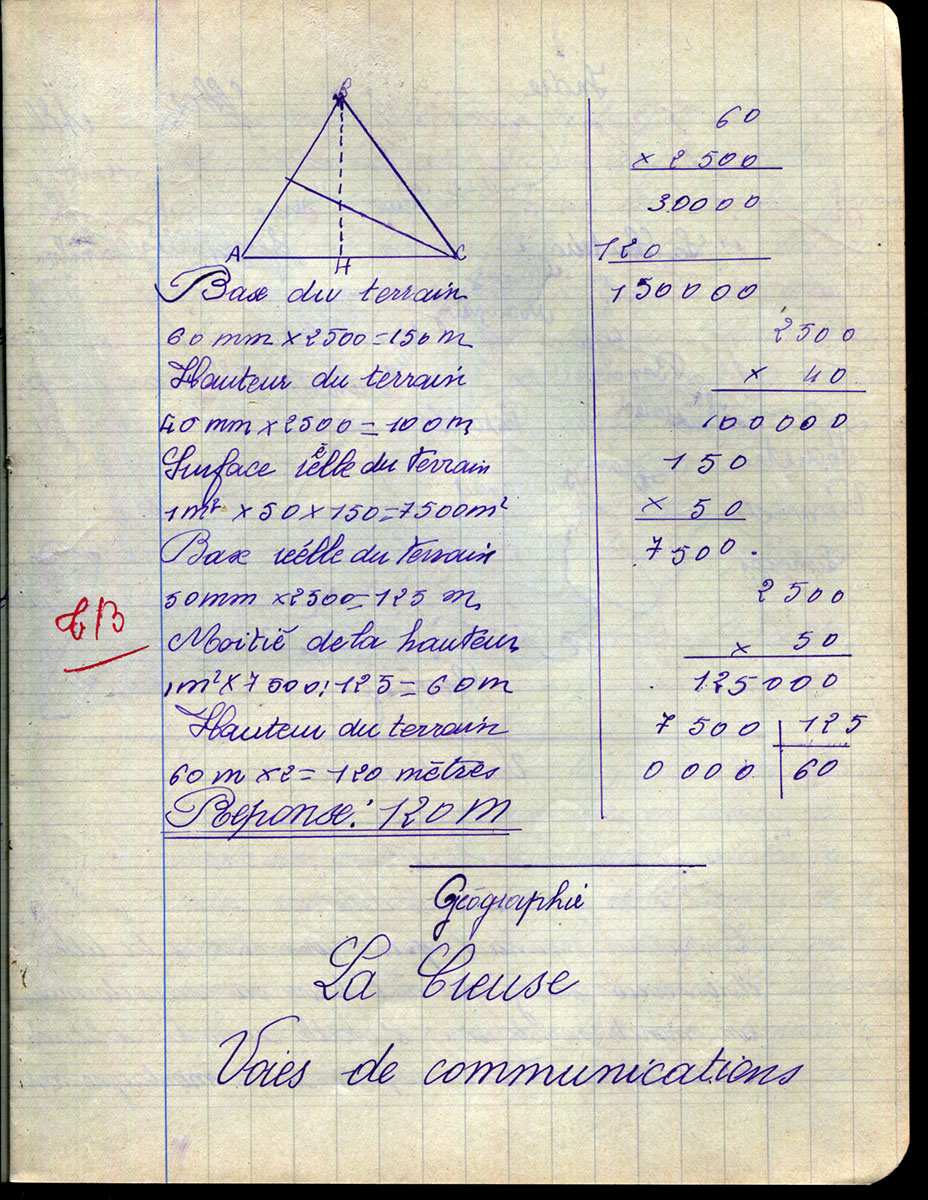 B
A
H
C
Base du terrain
60 mm × 2500 = 150 m
Hauteur du terrain
40 mm × 2500 = 100 m
Surface réelle du terrain
1m² × 50 × 150 = 7500 m²
Base réelle du terrain
50 mm × 2500 = 125 m
TB
Moitié de la hauteur
1m² × 7500 : 125 = 60 m
Hauteur du terrain
60 m × 2 = 120 mètres
Réponse : 120 m
60
× 2500
30000
120
150000
2500
× 40
100000
150
× 50
7500
2500
× 50
125000
7500 | 125
0000 | 60
Géographie
La Creuse
Voies de communications